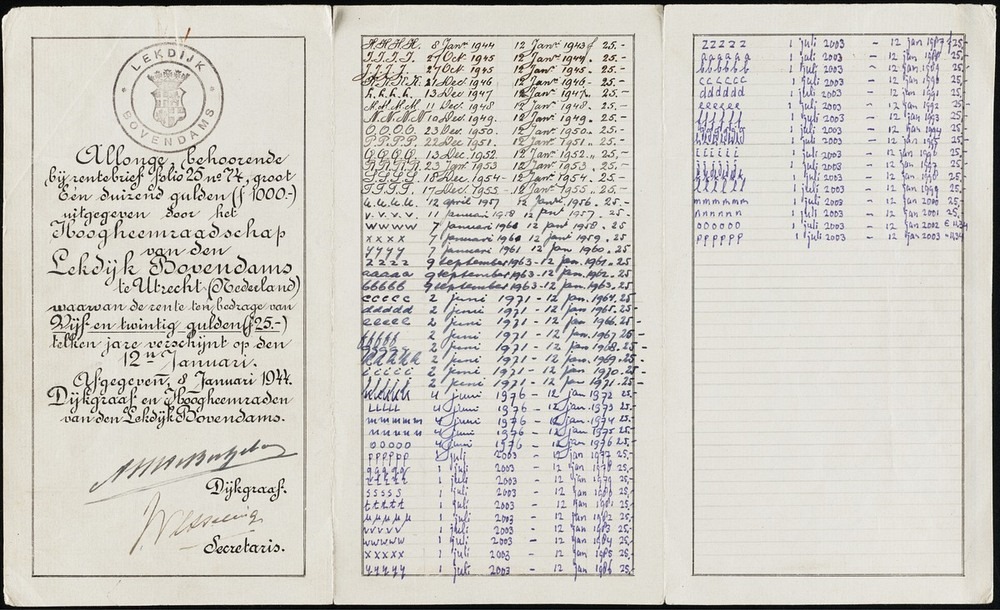 LEKDIJK
BOVENDAMS
Allonge, behoorende
bij rentebrief folio 25 no 74, groot
Een duizend gulden (ƒ 1000.-)
uitgegeven door het
Hoogheemraadschap
van den
Lekdijk Bovendams
te Utrecht (Nederland)
waarvan de rente ten bedrage van
Vijf en twintig gulden (ƒ 25.-)
telken jare verschijnt op den
12n Januari.
Afgegeven, 8 Januari 1944.
Dijkgraaf en Hoogheemraden
van den Lekdijk Bovendams.
Dijkgraaf.
Secretaris.
H.H.H.H. 8 Janr 1944 12 Janri 1943 ƒ 25.-
I.I.I.I. 27 Oct. 1945 12 Janri 1944. 25.-
27 Oct 1945 12 Janr 1945. 25.-
K.K.K.K. 21 Dec. 1946 12 Janr 1946. 25.-
L.L.L.L. 13 Dec. 1947 12 Janr 1947. 25.-
M.M.M.M. 11 Dec. 1948 12 Janr 1948. 25.-
N.N.N.N. 10 Dec. 1949. 12 Janr 1949. 25.-
O.O.O.O. 23 Dec. 1950. 12 Janr 1950. 25.-
P.P.P.P. 22 Dec. 1951. 12 Janr 1951. 25.-
Q.Q.Q.Q. 13 Dec. 1952. 12 Janr 1952. 25.-
R.R.R.R. 1953 12 Janr 1953. 25.-
S.S.S.S. 18 Dec. 1954 12 Janr 1954. 25.-
T.T.T.T. 17 Dec. 1955 12 Janr 1955. 25.-
u.u.u.u. 12 april 1957 12 Janri 1956. 25.-
v.v.v.v. 11 januari 1958 12 1957. 25
wwww 7 januari 1960 12 1958. 25
xxxx 7 januari 1960 12 1959. 25
yyyy januari 1961 12 1960. 25
zzzz 9 september 1963 - 12 jan. 1961. 25
aaaaa 9 september 1963 - 12 jan. 1962. 25
bbbbb 9 september 1963 - 12 jan. 1963. 25
ccccc 2 juni 1971 - 12 jan. 1964. 25
ddddd 2 juni 1971 - 12 jan 1965. 25
eeeee 2 juni 1971 - 12 jan 1966. 25
fffff 2 juni 1971 - 12 jan 1967. 25
2 juni 1971 - 12 jan 1968. 25
hhhhh 2 juni 1971 - 12 jan. 1969. 25
iiiii 2 juni 1971 - 12 jan 1970. 25
jjjjj 2 juni 1971 - 12 jan 1971. 25
kkkkk 4 juni 1976 - 12 jan 1972 25
lllll 4 juni 1976 - 12 jan. 1973 25
mmmmm 4 juni 1976 - 12 jan 1974 25
nnnnn 4 juni 1976 - 12 jan 1975 25
ooooo 4 juni 1976 - 12 jan 1976 25,-
ppppp 1 juli 2003 - 12 jan 1977 25,-
qqqqq 1 juli 2003 - 12 jan 1978 25,-
rrrrr 1 juli 2003 - 12 jan 1979 25,-
sssss 1 juli 2003 - 12 jan 1980 25,-
ttttt 1 juli 2003 - 12 jan 1981 25,-
uuuuu 1 juli 2003 - 12 jan 1982 25,-
vvvvv 1 juli 2003 - 12 jan 1983 25,-
wwwww 1 juli 2003 - 12 jan 1984 25,-
xxxxx 1 juli 2003 - 12 jan 1985 25,-
yyyyy 1 juli 2003 - 12 jan 1986 25,-
zzzzz 1 juli 2003 - 12 jan 1987 ƒ 25,-
aaaaaa 1 juli 2003 - 12 jan 1988 25,-
bbbbbb 1 juli 2003 - 12 jan 1989 25,-
cccccc 1 juli 2003 - 12 jan 1990 25,-
dddddd 1 juli 2003 - 12 jan 1991 25,-
eeeeee 1 juli 2003 - 12 jan 1992 25,-
ffffff 1 juli 2003 - 12 jan 1993 25,-
1 juli 2003 - 12 jan 1994 25,-
hhhhhh 1 juli 2003 - 12 jan 1995 25,-
iiiiii 1 juli 2003 - 12 jan 1996 25,-
jjjjjj 1 juli 2003 - 12 jan 1997 25,-
kkkkkk 1 juli 2003 - 12 jan 1998 25,-
llllll 1 juli 2003 - 12 jan 1999 25,-
mmmmmm 1 juli 2003 - 12 jan 2000 25,-
nnnnnn 1 juli 2003 - 12 jan 2001 25,-
oooooo 1 juli 2003 - 12 jan 2002 € 11,34
pppppp 1 juli 2003 - 12 jan 2003 € 11,34